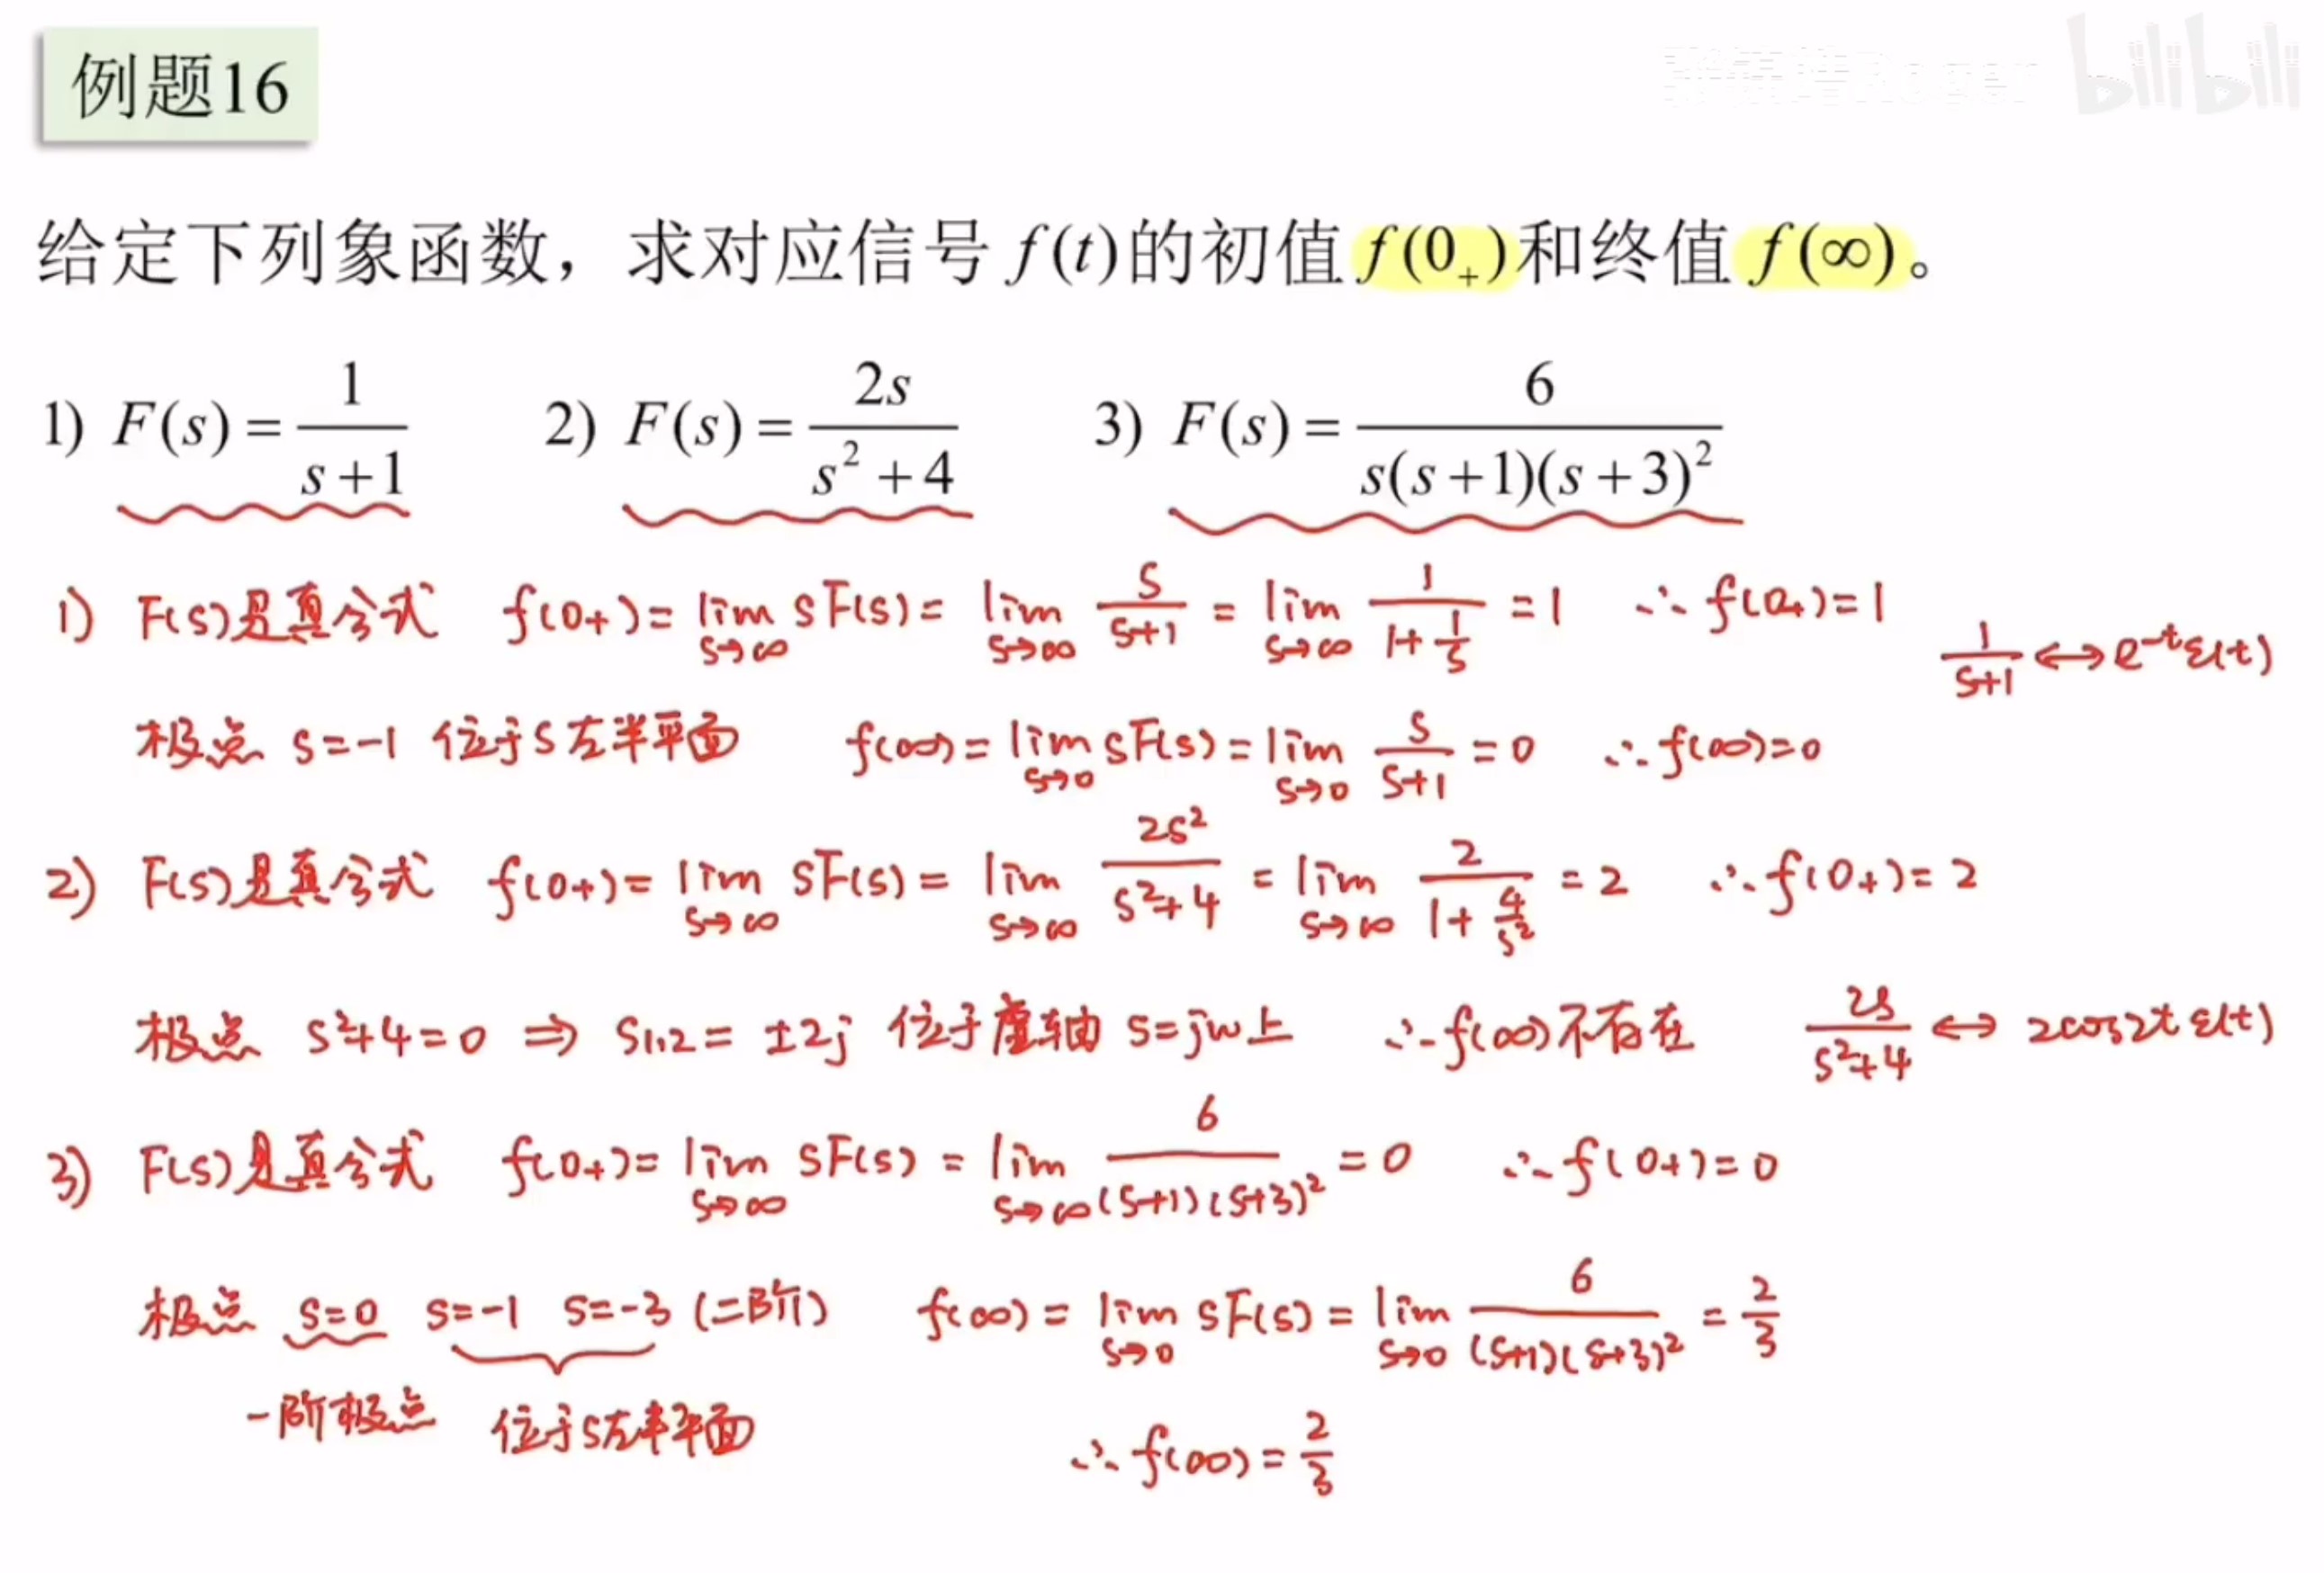 例题16
bilibili
给定下列象函数，求对应信号 f(t)的初值 f(0₊)和终值 f(∞)。
1) F(s) = 1/(s+1)    2) F(s) = 2s/(s²+4)    3) F(s) = 6/(s(s+1)(s+3)²)
1) F(s)是真分式 f(0+) = lim_{s→∞} sF(s) = lim_{s→∞} s/(s+1) = lim_{s→∞} 1/(1+1/s) = 1 ∴ f(0+) = 1
1/(s+1) ↔ e^{-t}ε(t)
极点 s=-1 位于s左半平面 f(∞) = lim_{s→0} sF(s) = lim_{s→0} s/(s+1) = 0 ∴ f(∞)=0
2) F(s)是真分式 f(0+) = lim_{s→∞} sF(s) = lim_{s→∞} 2s²/(s²+4) = lim_{s→∞} 2/(1+4/s²) = 2 ∴ f(0+) = 2
极点 s²+4=0 ⇒ s1,2 = ±2j 位于虚轴 s=jω上 ∴ f(∞)不存在 2s/(s²+4) ↔ 2cos2t ε(t)
3) F(s)是真分式 f(0+) = lim_{s→∞} sF(s) = lim_{s→∞} 6/((s+1)(s+3)²) = 0 ∴ f(0+) = 0
极点 s=0 s=-1 s=-3 (二阶) f(∞) = lim_{s→0} sF(s) = lim_{s→0} 6/((s+1)(s+3)²) = 2/3
一阶极点 位于s左半平面 ∴ f(∞) = 2/3